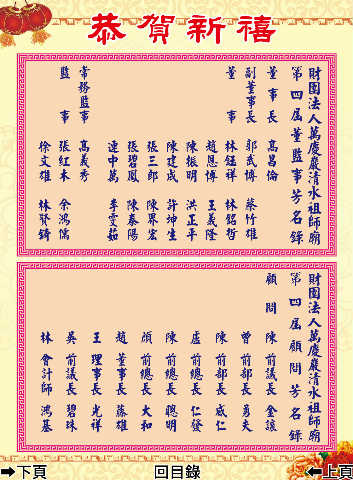 恭賀新禧
財團法人萬慶巖清水祖師廟
第四屆董監事芳名錄
董事長 高昌倫
副董事長 郭武博 蔡竹雄
董事 林鈺祥 林銘哲
趙恩博 王義隆
陳振明 洪正平
陳建成 許坤生
張三郎 陳果宏
張碧鳳 陳泰陽
連中萬 李雯茹
常務監事 高義秀
監事 張紅木 余鴻儒
徐文雄 林賢錡
財團法人萬慶巖清水祖師廟
第四屆顧問芳名錄
顧問 陳前議長金讓
曾前部長勇夫
陳前部長威仁
盧前總長仁發
陳前總長聰明
顏前總長大和
趙董事長藤雄
王理事長光祥
吳前議長碧珠
林會計師鴻基
➡下頁 回目錄 ⬅上頁